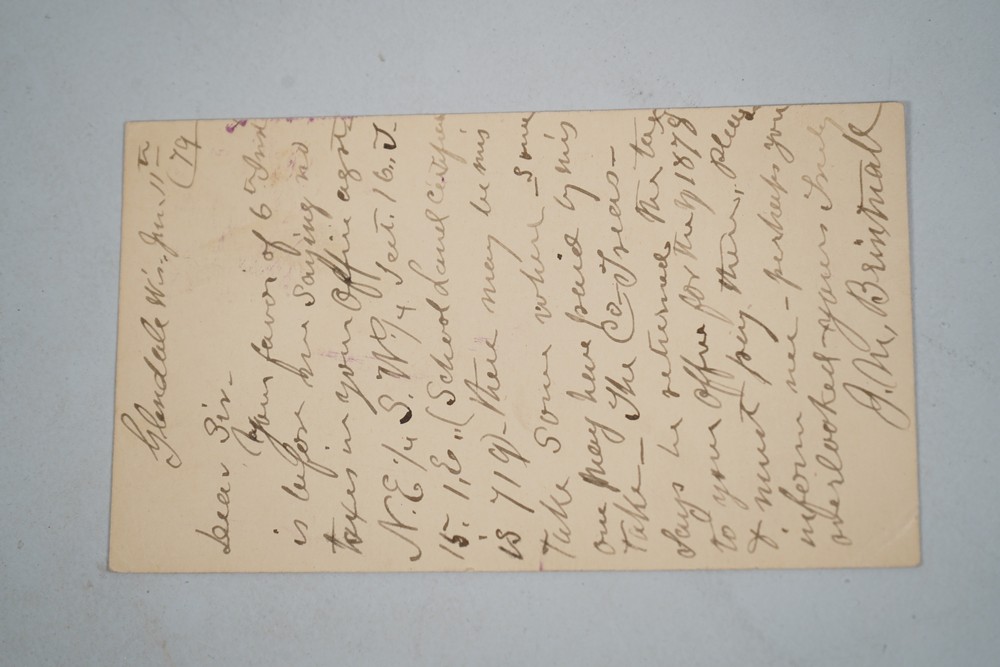 Glendale Wis. Jan. 11th
(79
Dear Sir—
Your favor of 6th Inst
is before me saying no
taxes in your Office agst
N.E. 1/4 S.W. 1/4 Sect. 16. T.
15. 1, E. (School Land Certificate
is 719) - there may be mis
take some where - Some
one may have paid by mis
take — The Co- Treas—
says he returned the tax
to your Office for the yr 1878
& must pay there, Please
inform me - perhaps you
overlooked - yours Truly
J. M. Brintnall